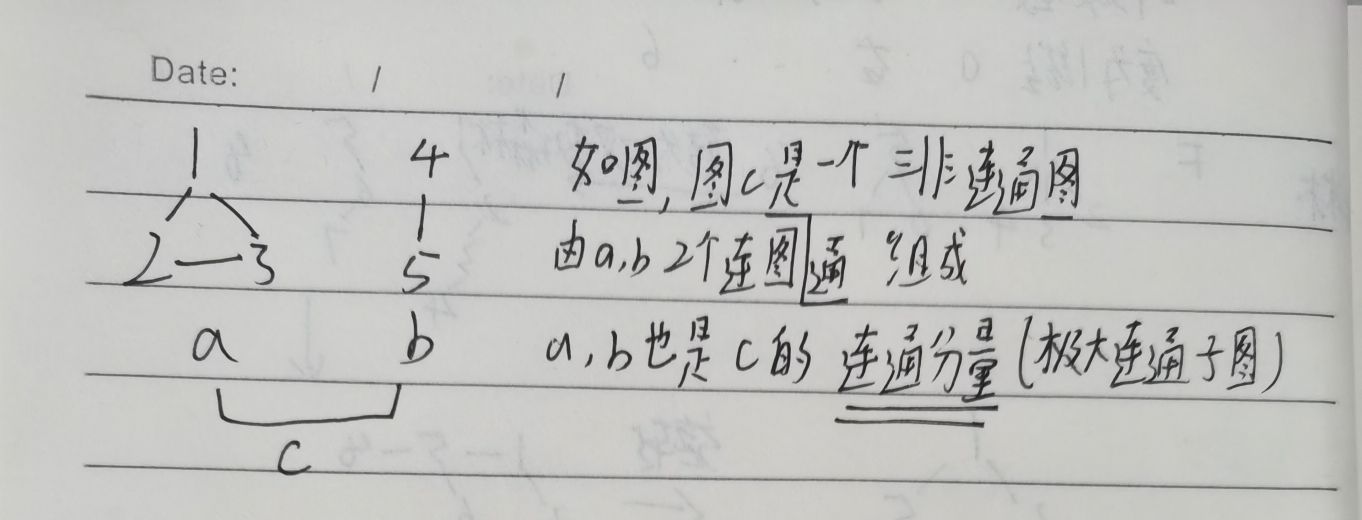 Date: / /
1 4 如图,图c是一个非连通图
2—3 5 由a,b 2个连图通组成
a b a,b也是c的连通分量(极大连通子图)
c